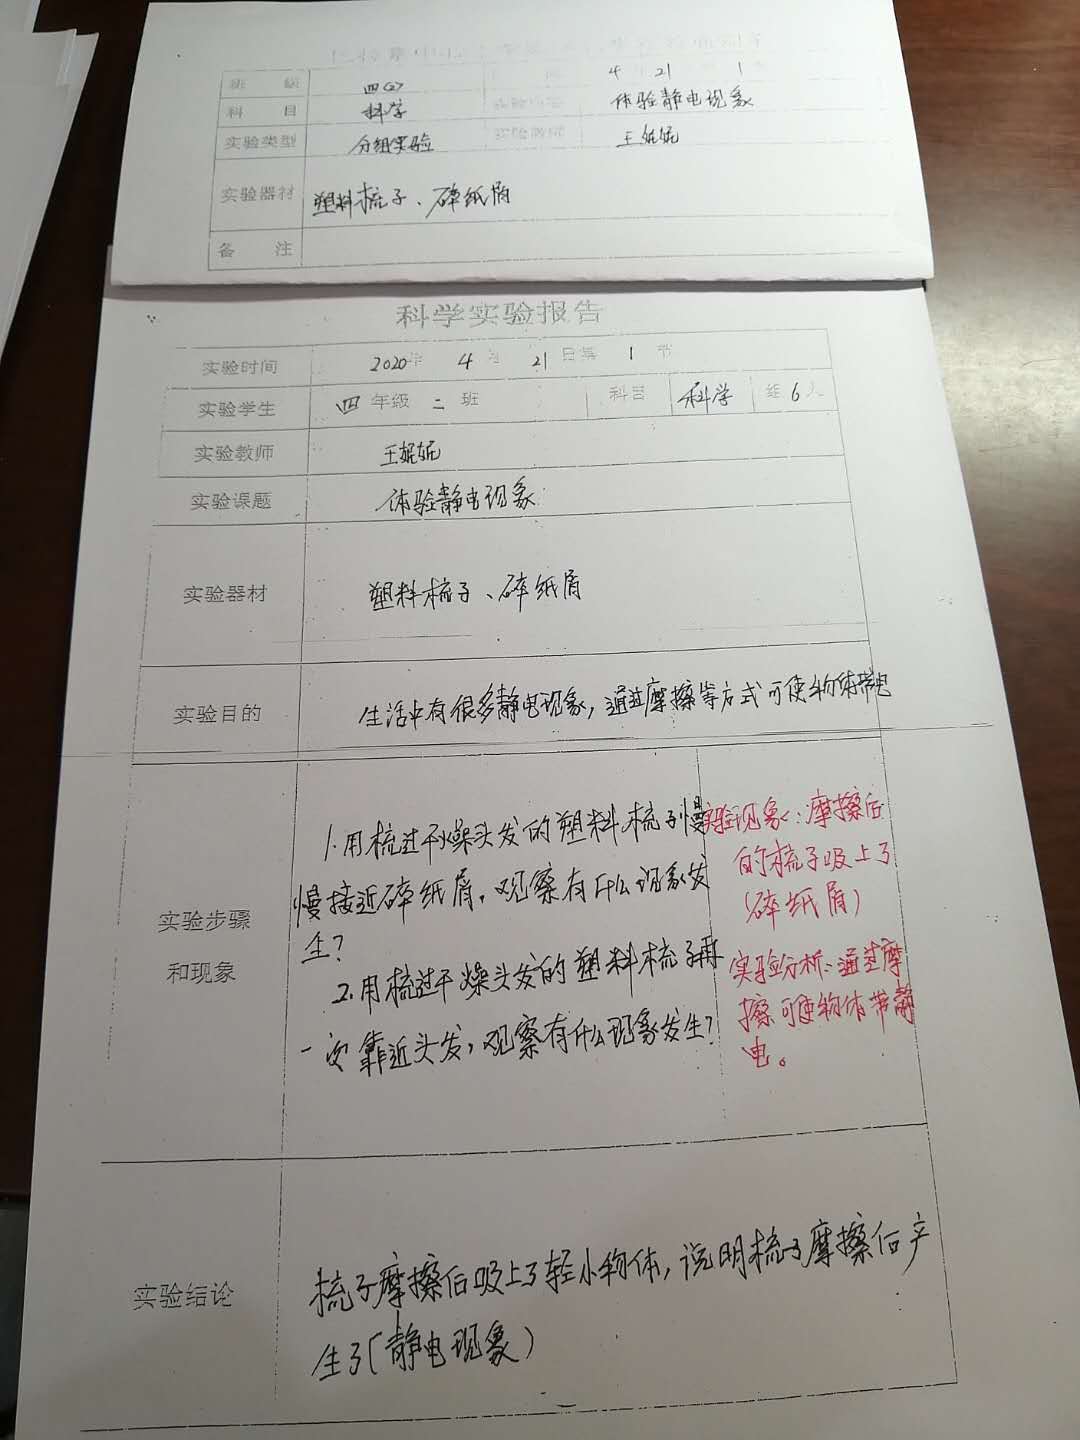 班 级 四(2) 4 21 1
科 目 科学 体验静电现象
实验类型 分组实验 实验教师 王妮妮
实验器材 塑料梳子、碎纸屑
备 注
科学实验报告
实验时间 2020年 4月 21日第 1 节
实验学生 四年级二班 科目 科学 组6人
实验教师 王妮妮
实验课题 体验静电现象
实验器材 塑料梳子、碎纸屑
实验目的 生活中有很多静电现象,通过摩擦等方式可使物体带电
实验步骤
和现象
1.用梳过干燥头发的塑料梳子慢
慢接近碎纸屑,观察有什么现象发
生?
2.用梳过干燥头发的塑料梳子再
一次靠近头发,观察有什么现象发生?
实验现象:摩擦后
的梳子吸上了
(碎纸屑)
实验分析:通过摩
擦可使物体带静
电。
实验结论
梳子摩擦后吸上了轻小物体,说明梳子摩擦后产
生了(静电现象)